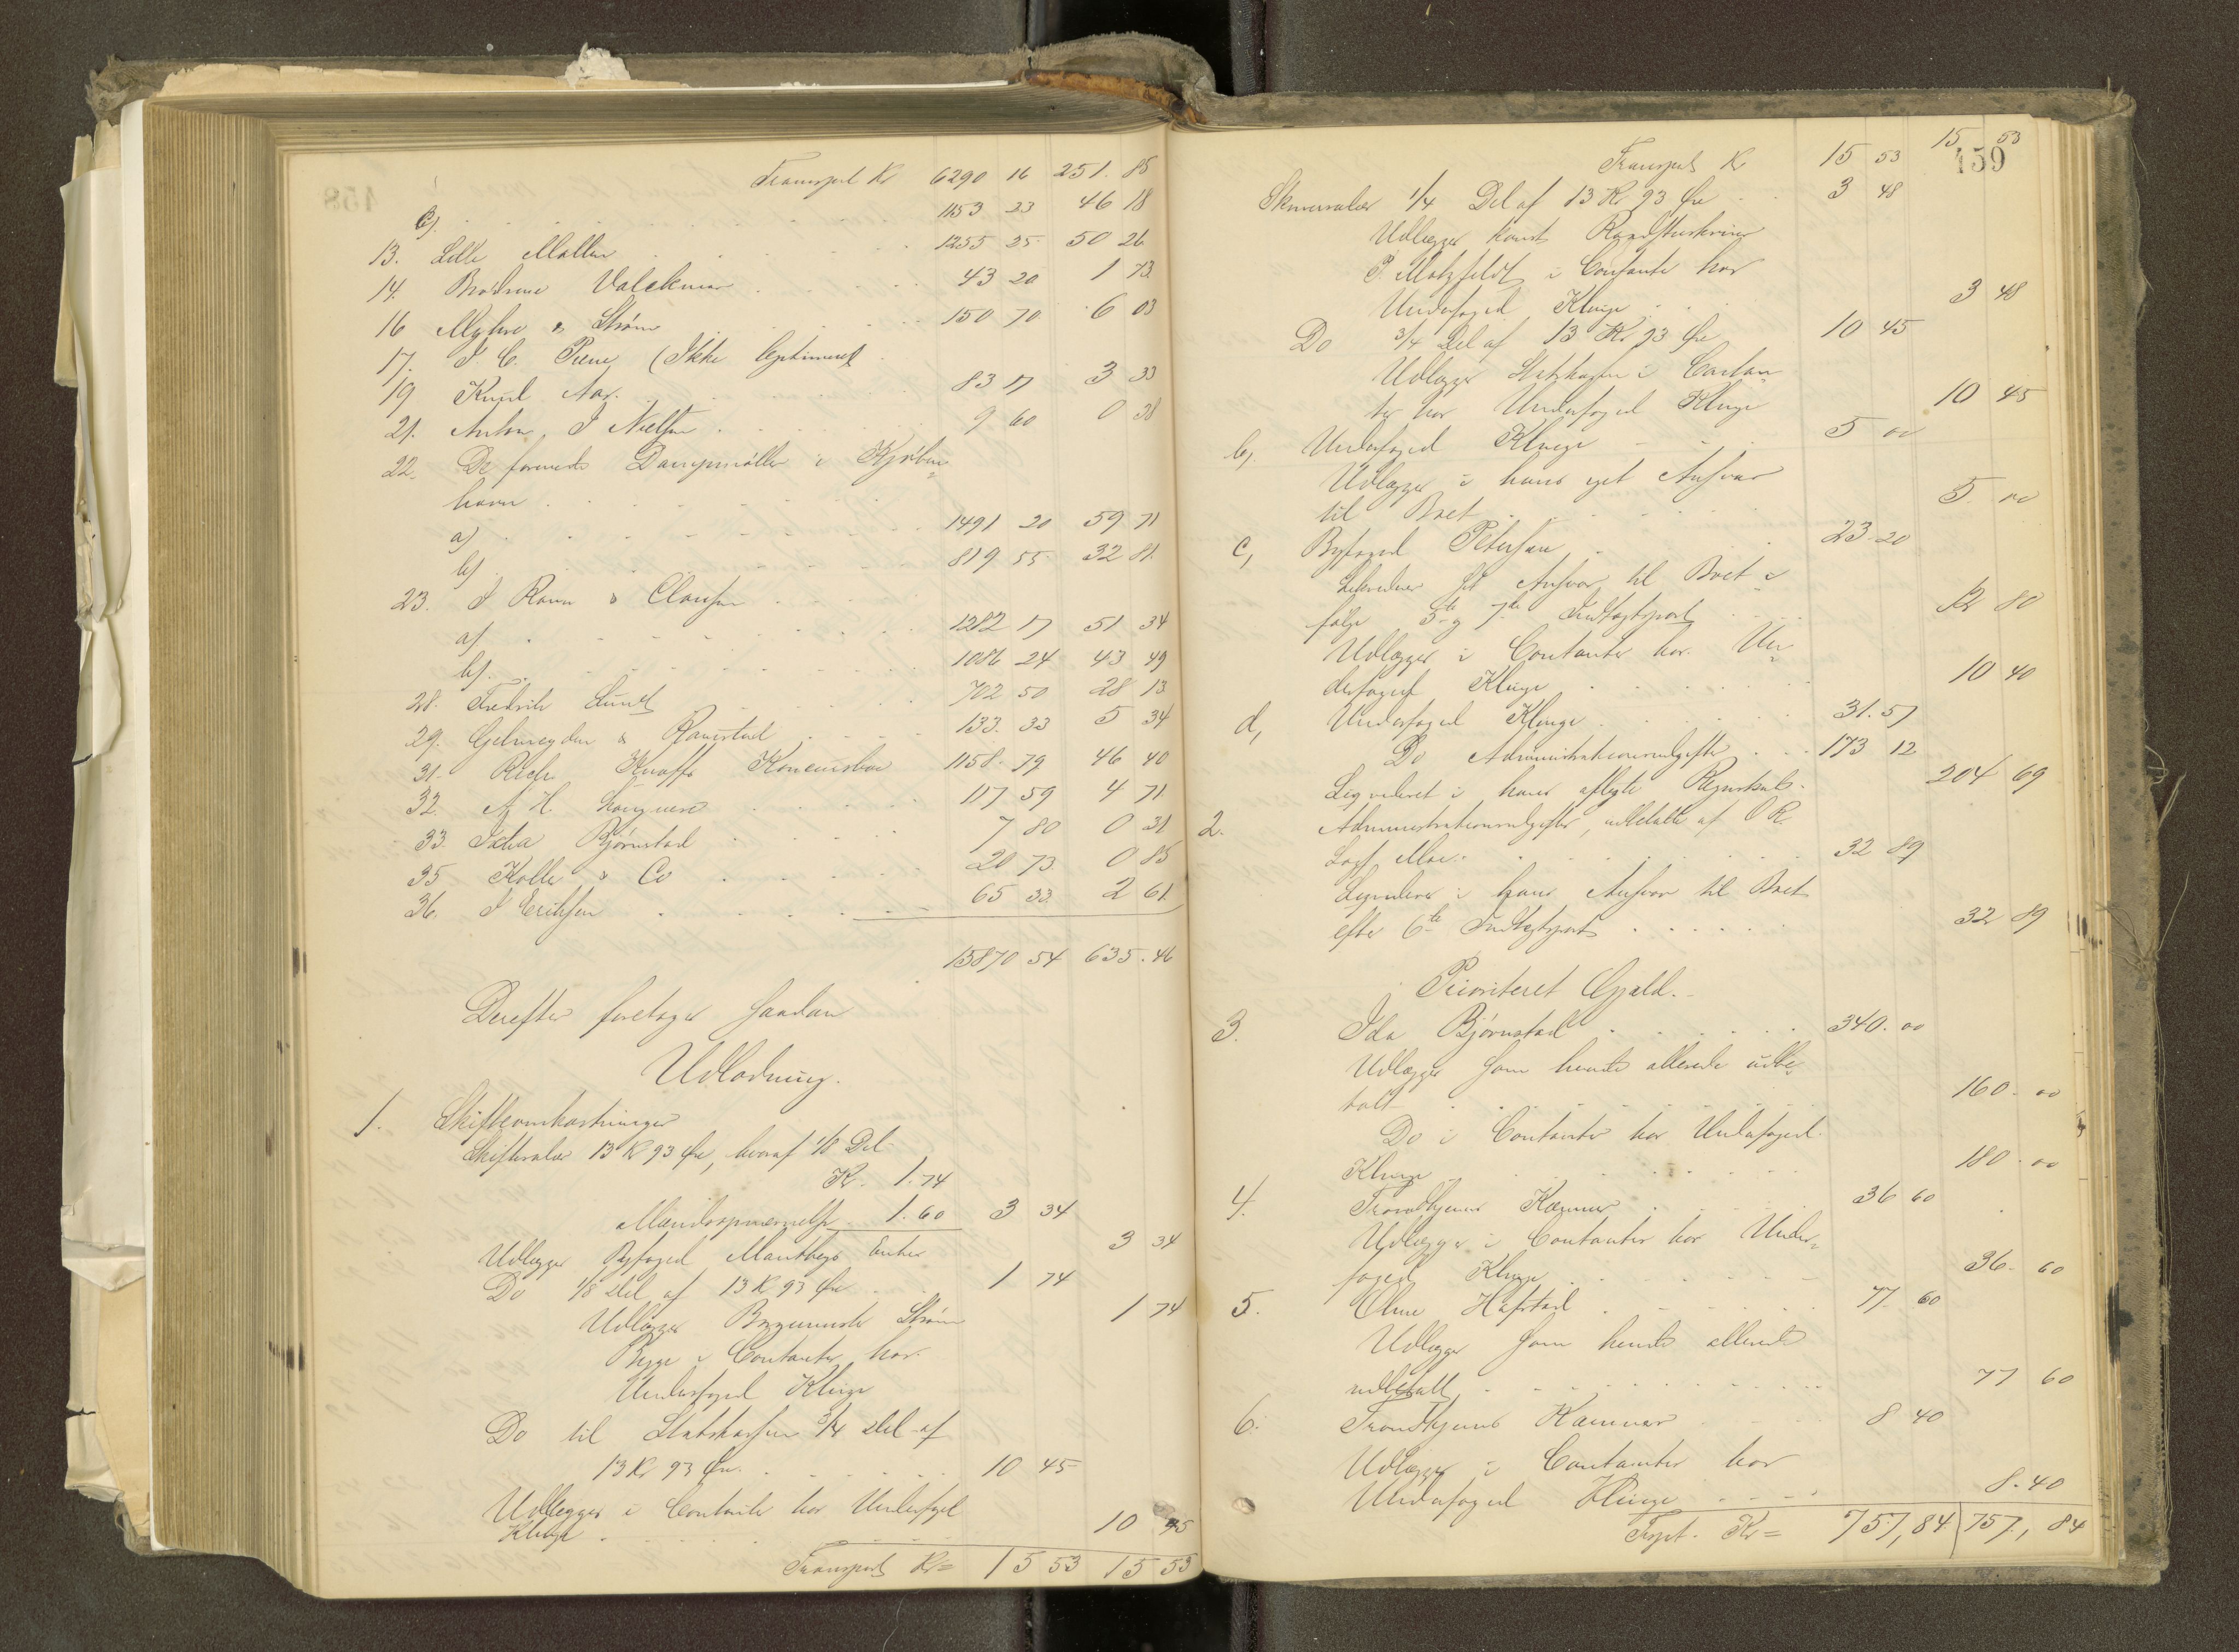 Transport Kr 6290 16 251. 85
b). 1153 23 46 18
13. Lille Møllen 1255 25 50 26
14. Brødrene Valckmar 43 20 1 73
16 Myhre & Strøm 150 70 6 03
17. J. C. Piene (Ikke legitimeret
19 Knud Aar. 83 17 3 33
21. Anton J Nielsen 9 60 0 38
22. De forenede Dampmøller i Kjøben-
havn
a) 1491 20 59 71
b). 819 55 32 81.
23. J Ravn & Clausen
a) 1282 17 51 34
b). 1086 24 43 49
28. Fredrik Lund 702 50 28 13
29. Gelmeyden & Ramstad 133. 33 5 34
31. Richs. Knoffs Koncursbo 1158. 79 46 40
32. A H 117 59 4 71
33. Ida Bjørnstad 7 80 0 31
35 Koller & Co 20 73. 0 85
36. J Eriksen 65 33. 2 61.
15870 54 635.46
Derefter foretoges saadan
Udlodning.
1. Skifteomkostninger
Skiftesalær 13 Kr 93 Øre, hvoraf 1/8 Del
Kr. 1.74
Mændsopnævnelse 1.60 3 34
Udlægges Byfoged Mantheys Enke 3 34
Do 1/8 Del af 13 Kr 93 Øre 1 74
Udlægges Borgermester Strøm 1 74
Begge i Contanter hos
Underfoged Klinge
Do til Statskassen 3/4 Del af
13 Kr 93 Øre. 10 45
Udlægges i Contanter hos Underfoged
Klinge 10 45
Transport Kr= 15 53 15 53
159
15 53
Transport Kr 15 53
Skriversalær 1/4 Del af 13 Kr 93 Øre 3 48
Udlægges const.
P. Motzfeldt i Contante hos
Underfoged Klinge 3 48
Do 3/4 Del af 13 Kr 93 Øre 10 45
Udlægges Statskassen i Contan-
ter hos Underfoged Klinge 10 45
b, Underfoged Klinge 5 00
Udlægges i hans eget Ansvar
til Boet 5. 00
c, Byfoged Petersen 23.20
Likvideres hs Ansvar til Boet i-
følge 5te og 7de Indtægtspost 12 80
Udlægges i Contanter hos Un-
derfoged Klinge 10 40
d, Underfoged Klinge 31.57
Do Administrationsudgifter 173 12
Liqvideret i hans aflagte Regnskab. 204 69
2. Administrationsudgifter, udbetalte af O R.
Sagf. Moe. 32 89
Liqvideres i hans Ansvar til Boet
efter 6te Indtægtspost 32 89
Prioriteret Gjæld.
3. Ida Bjørnstad 340. 00
Udlægges som hende allerede udbe-
talt 160. 00
Do i Contanter hos Underfoged
Klinge 180. 00
4. Trondhjems Kæmner 36 60
Udlægges i Contanter hos Under-
foged Klinge 36. 60
5. Oline Hafstad 77. 60
Udlægges som hende allerede
udbetalt 77 60
6. Trondhjems Kæmner 8 40
Udlægges i Contanter hos
Underfoged Klinge 8.40
Trspt. Kr= 757,84 757,84